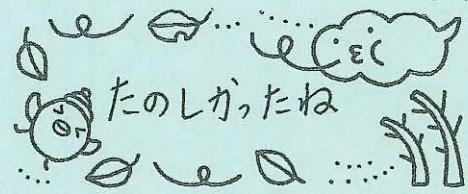 たのしかったね